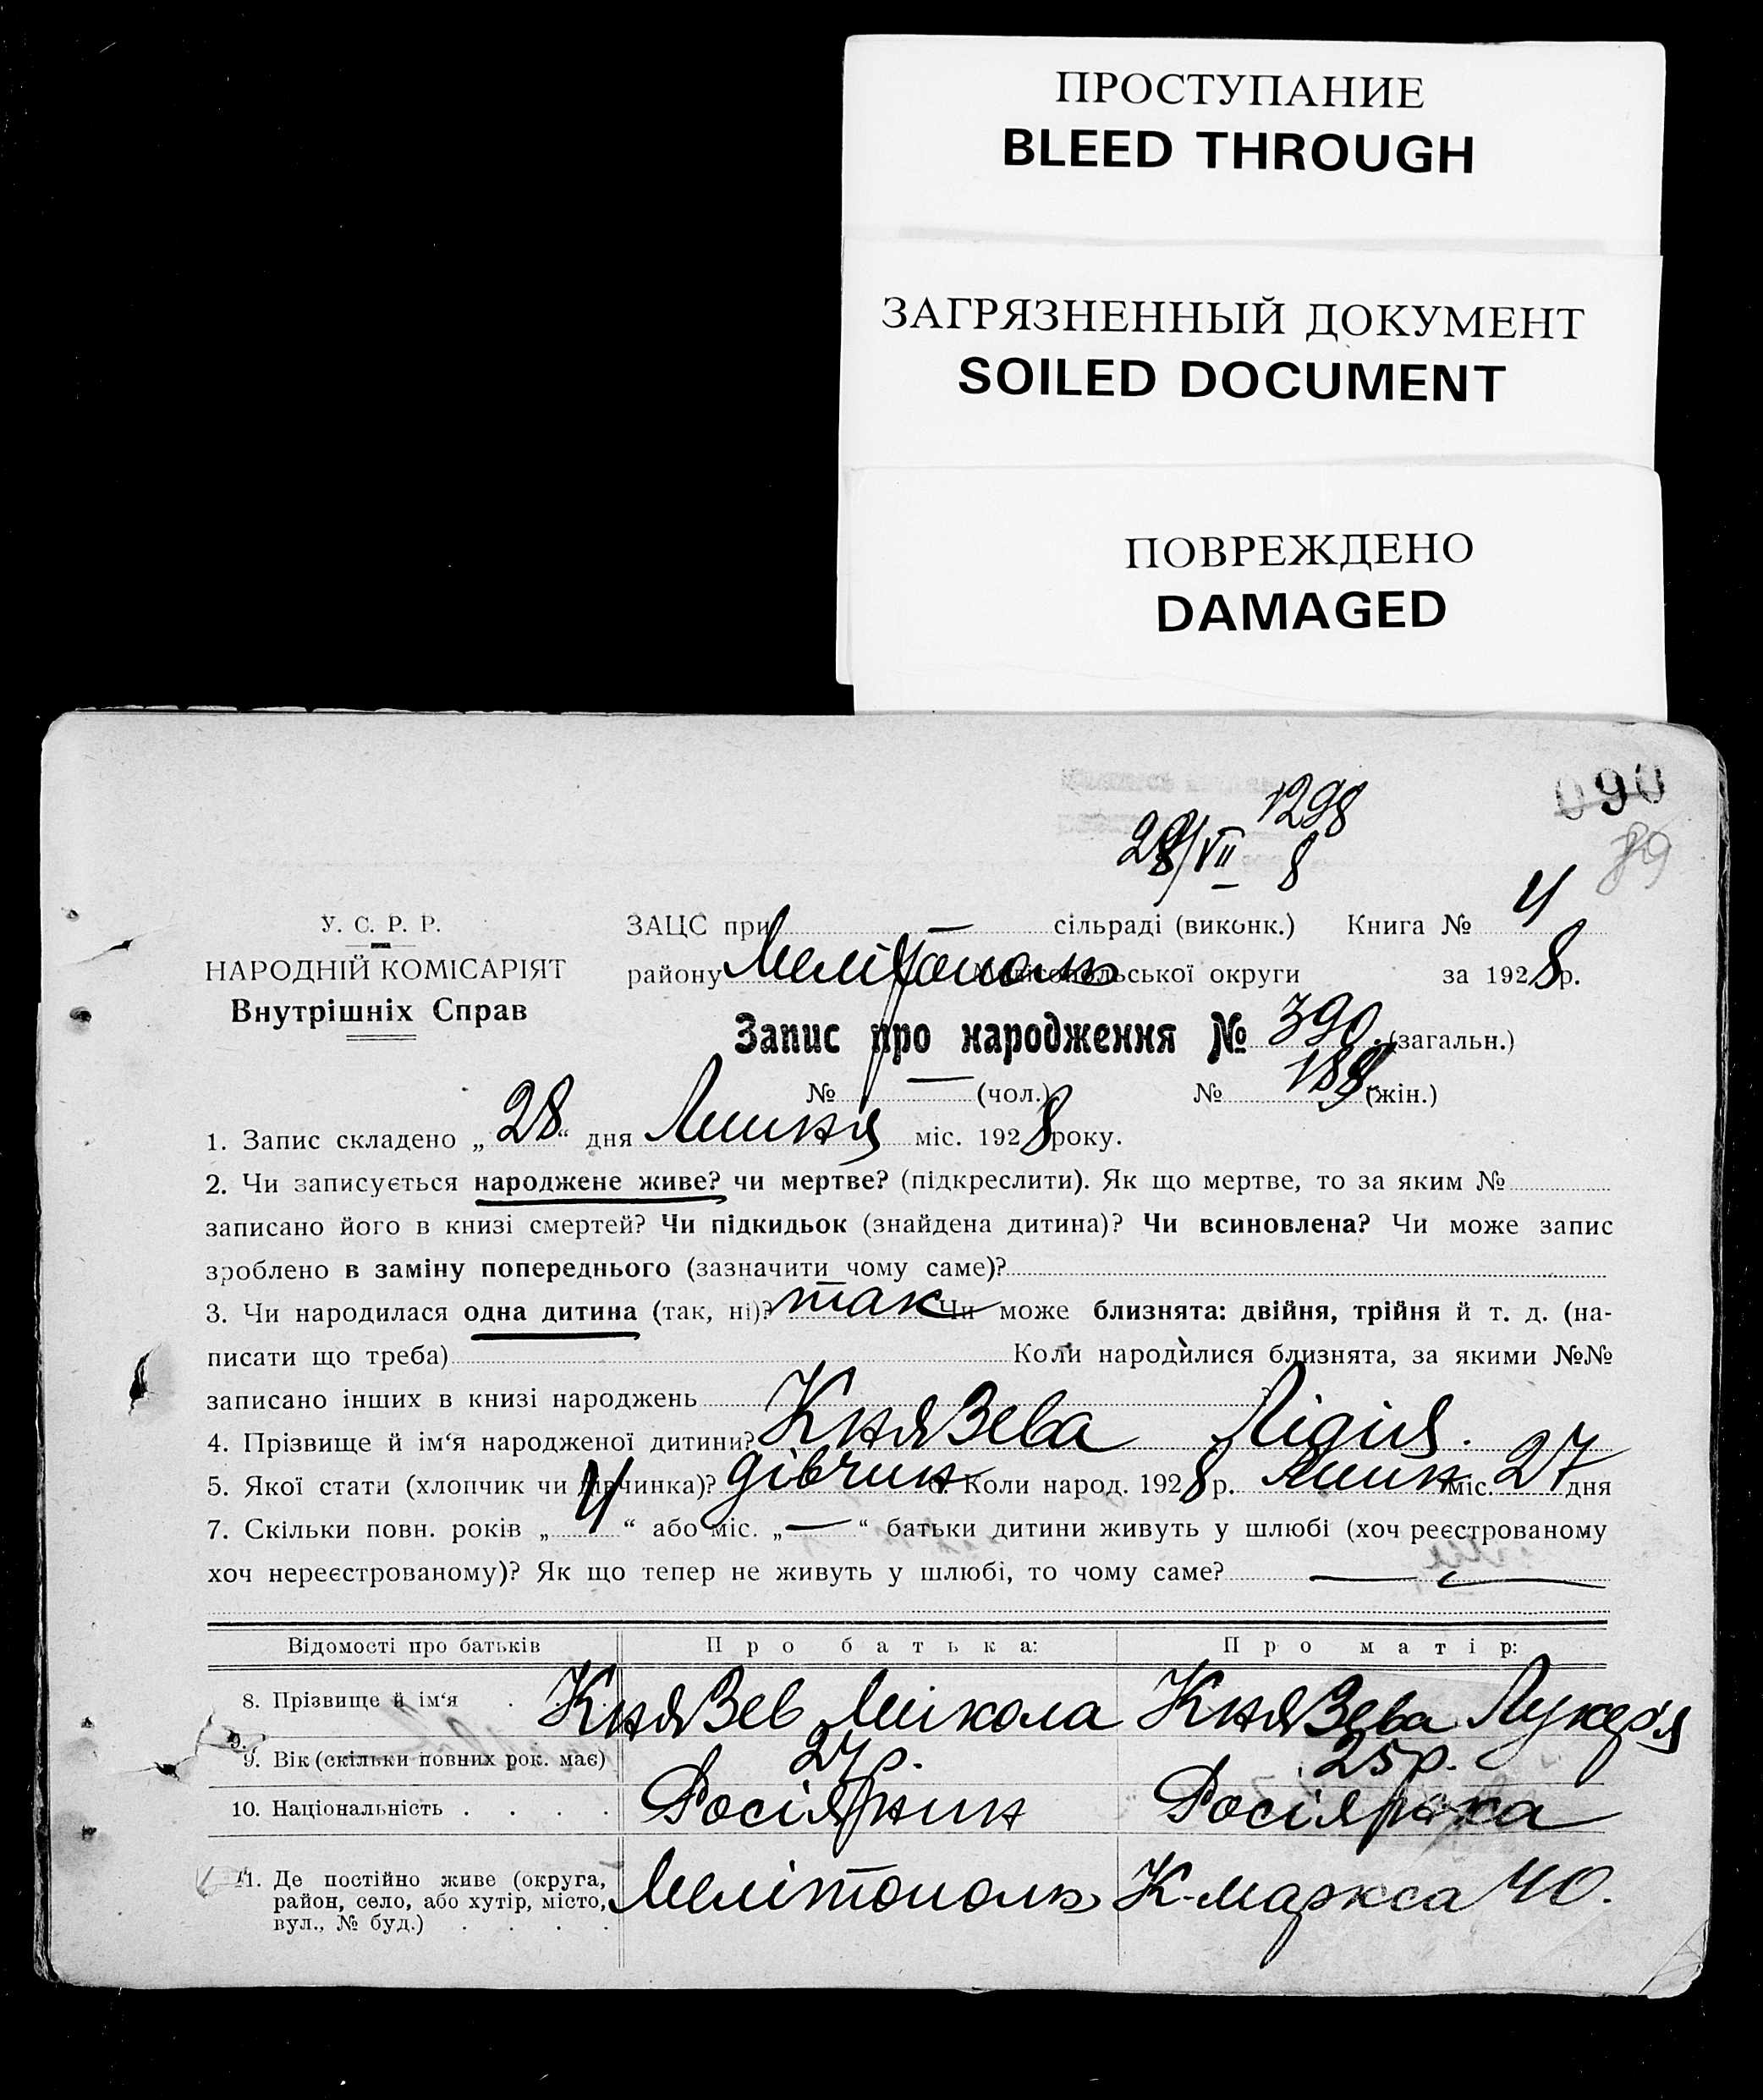 ПРОСТУПАНИЕ
BLEED THROUGH
ЗАГРЯЗНЕННЫЙ ДОКУМЕНТ
SOILED DOCUMENT
ПОВРЕЖДЕНО
DAMAGED
090
89
1298
28/VII 8
У. С. Р. Р.
НАРОДНІЙ КОМІСАРІЯТ
Внутрішніх Справ
ЗАЦС при сільраді (виконк.) Книга № 4
району Мелітополь Мелітопольської округи за 1928 р.
Запис про народження № 390 (загальн.)
№ — (чол.) № 188 (жін.)
1. Запис складено „28“ дня Липня міс. 1928 року.
2. Чи записується народжене живе? чи мертве? (підкреслити). Як що мертве, то за яким №
записано його в книзі смертей? Чи підкидьок (знайдена дитина)? Чи всиновлена? Чи може запис
зроблено в заміну попереднього (зазначити чому саме)?
3. Чи народилася одна дитина (так, ні)? так Чи може близнята: двійня, трійня й т. д. (на-
писати що треба) Коли народилися близнята, за якими №№
записано інших в книзі народжень
4. Прізвище й ім‘я народженої дитини? Князева Лідія.
5. Якої стати (хлопчик чи дівчинка)? дівчин 6. Коли народ. 1928 р. Липн міс. 27 дня
7. Скільки повн. років „4“ або міс. „—“ батьки дитини живуть у шлюбі (хоч реєстрованому
хоч нереєстрованому)? Як що тепер не живуть у шлюбі, то чому саме? — —
Відомості про батьків Про батька: Про матір:
8. Прізвище й ім‘я . . . Князев Микола Князева Лукер'я
9. Вік (скільки повних рок. має) 27 р. 25 р.
10. Національність . . . . Росіянин Росіянка
11. Де постійно живе (округа,
район, село, або хутір, місто,
вул., № буд.) . . . . Мелітополь К-Маркса 40.